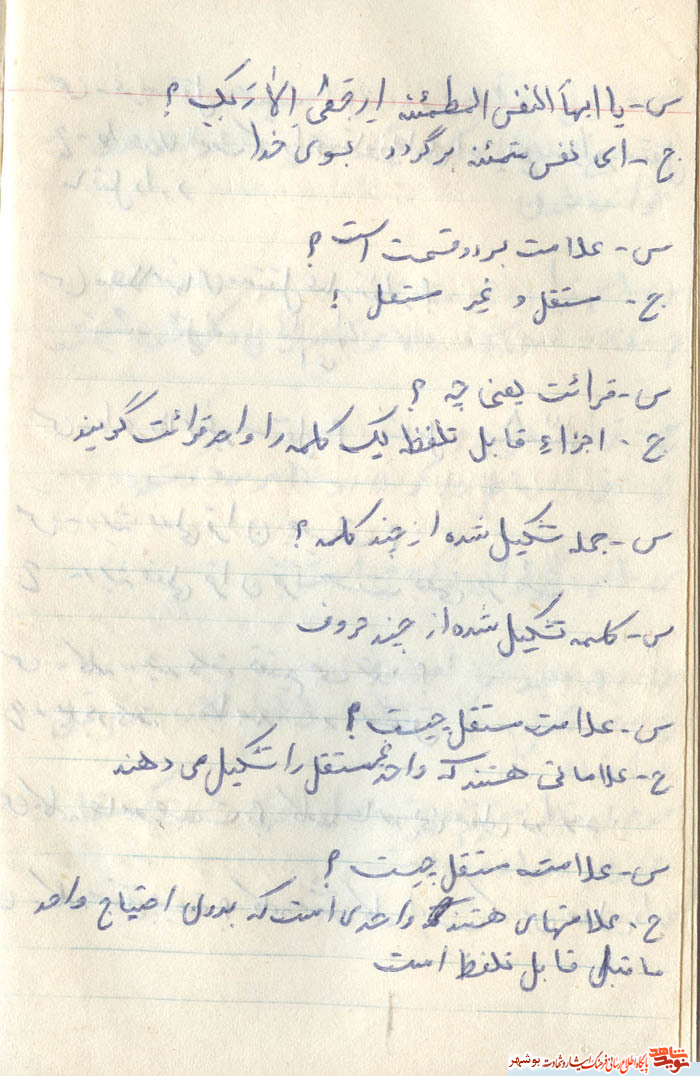 س- یا ایهاَ النفس المطمئنه ارجعی الا ربک ؟
ج- ای نفس متمئنه برگرد بسوی خدا
س- علامت بر دو قسمت است ؟
ج- مستقل و غیر مستقل ؟
س- قرائت یعنی چه ؟
ج- اجزاءِ قابل تلفظ یک کلمه را واحد قرائت گویند
س- جمله تشکیل شده از چند کلمه ؟
س- کلمه تشکیل شده از چند حروف
س- علامت مستقل چیست ؟
ج- علاماتی هستند که واحد مستقل را تشکیل می دهند
س- علامت مستقل چیست ؟
ج- علامتهای هستند واحدی است که بدون احتیاج واحد
ما قبل قابل تلفظ است
نوید شاهد پایگاه اطلاع رسانی فرهنگ ایثار و شهادت بوشهر